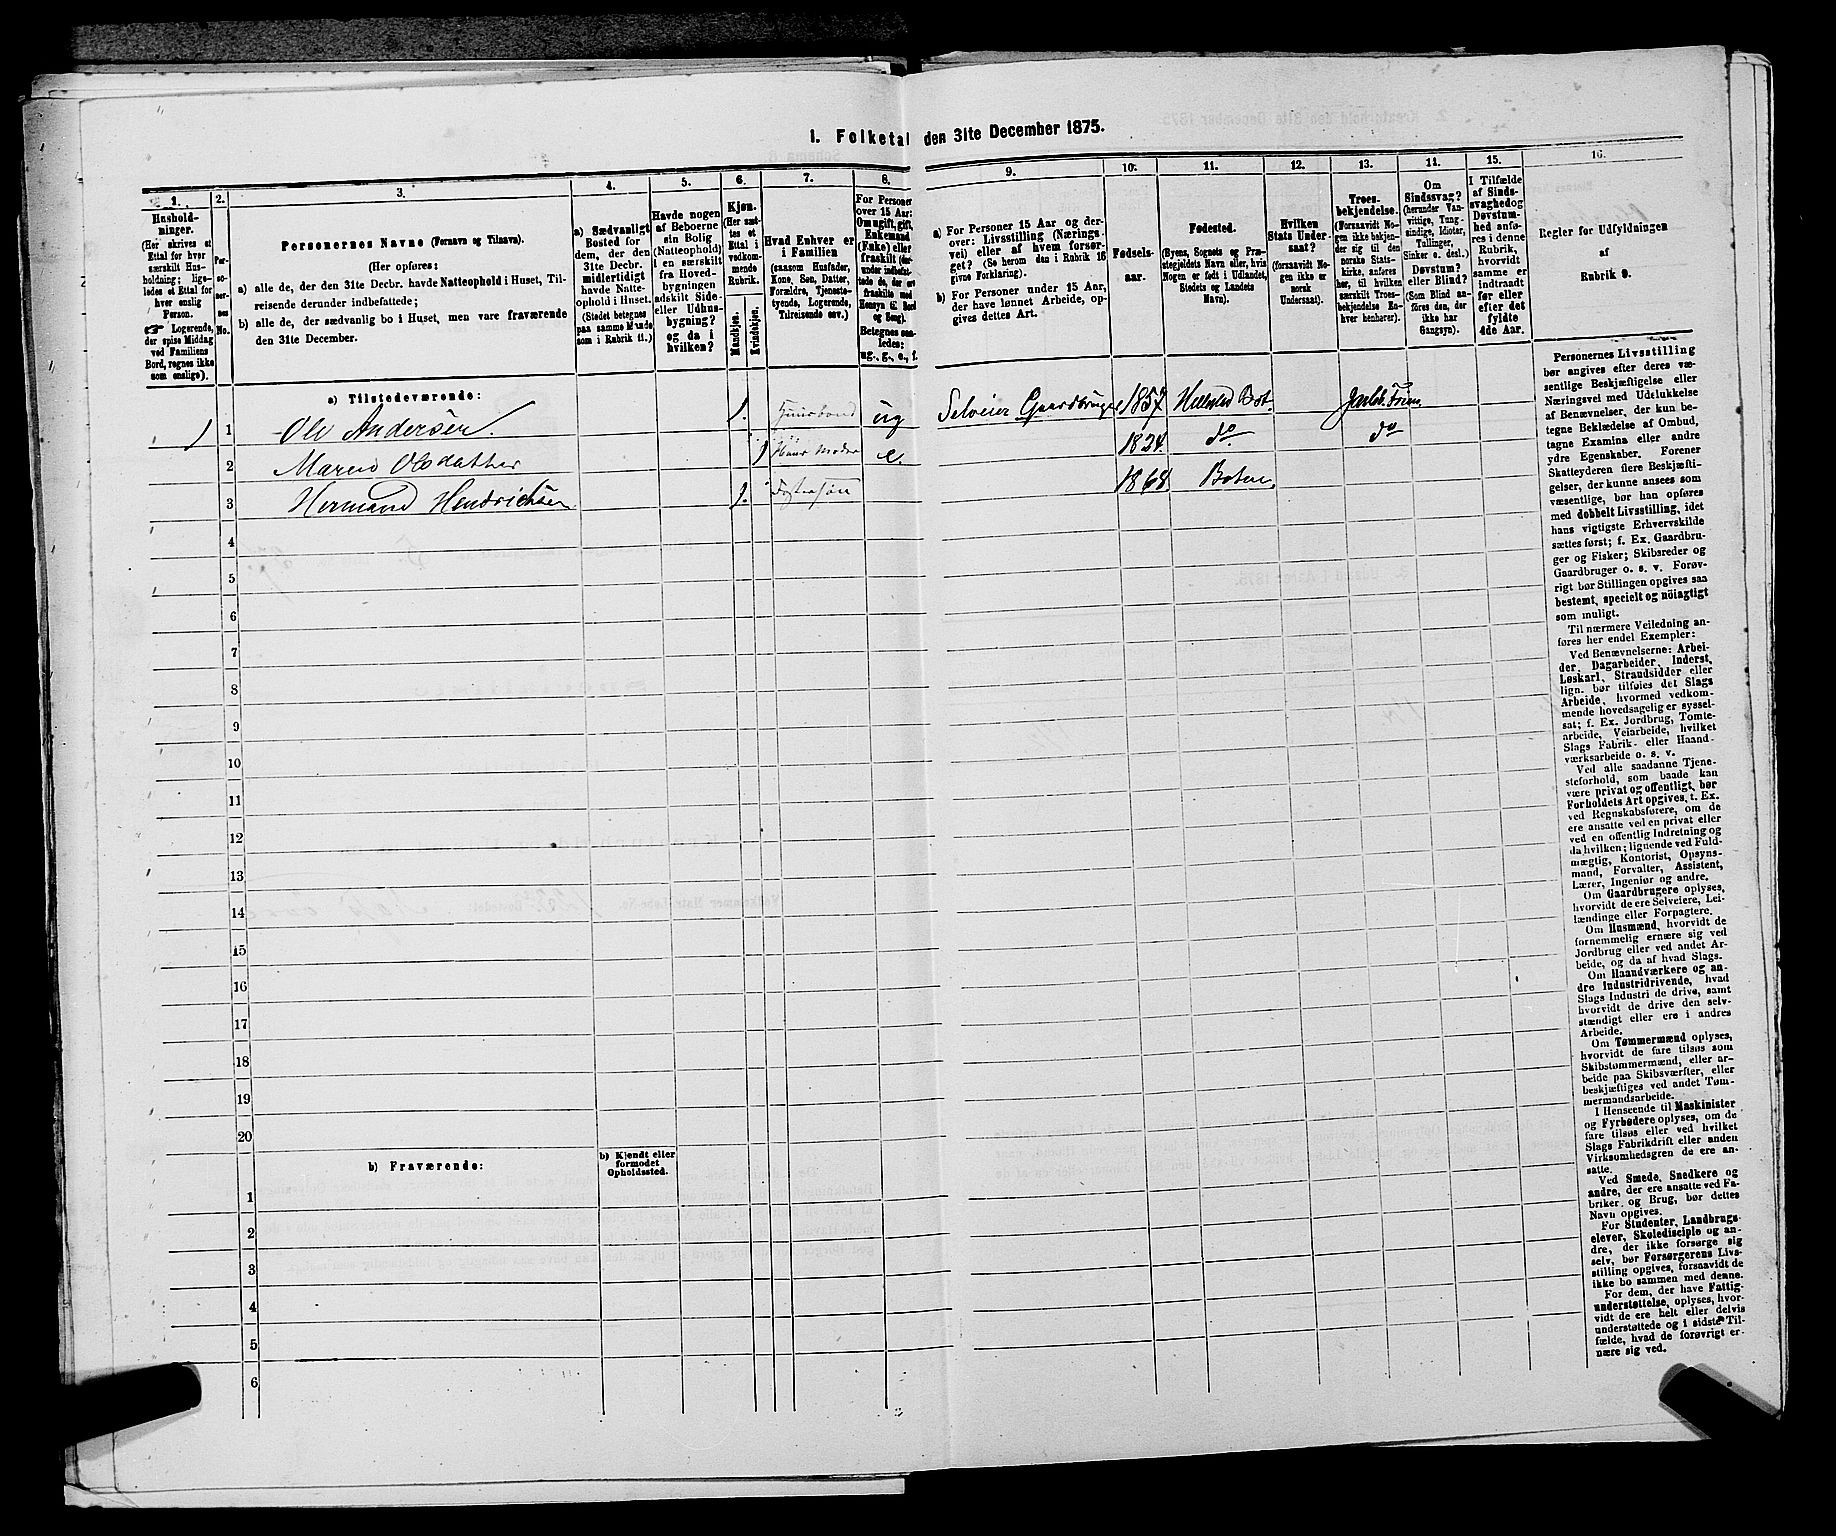 1. Folketal den 31te December 1875.
1.
Hushold-
ninger.
(Her skrives et
Ettal for hver
særskilt Hus-
holdning; lige-
ledes et Ettal for
hver enslig
Person.
☞ Logerende,
der spise Middag
ved Familiens
Bord, regnes ikke
som enslige).
2.
Per-
so-
ner-
nes
No.
3.
Personernes Navne (Fornavn og Tilnavn).
(Her opføres:
a) alle de, der den 31te Decbr. havde Natteophold i Huset, Til-
reisende derunder indbefattede;
b) alle de, der sædvanlig bo i Huset, men vare fraværende
den 31te December.
4.
a) Sædvanligt
Bosted for
dem, der den
31te Decbr.
midlertidigt
havde Natte-
ophold i Huset.
(Stedet betegnes
paa samme Maade
som i Rubrik 11.)
5.
Havde nogen
af Beboerne
sin Bolig
(Natteophold)
i en særskilt
fra Hoved-
bygningen
adskilt Side-
eller Udhus-
bygning?
og da i
hvilken?
6.
Kjøn.
(Her sæt-
tes et
Ettal i
vedkom-
mende
Rubrik.
Mandkjøn.
Kvindekjøn.
7.
Hvad Enhver er
i Familien
(saasom Husfader,
Kone, Søn, Datter,
Forældre, Tjeneste-
tyende, Logerende,
Tilreisende osv.)
8.
For Personer
over 15 Aar:
Om ugift, gift,
Enkemand
(Enke) eller
fraskilt
Betegnes saa-
ledes:
ug., g., e., f.
9.
a) For Personer 15 Aar og der-
over: Livsstilling (Nærings-
vei) eller af hvem forsør-
get? (Se herom den i Rubrik 16
givne Forklaring).
b) For Personer under 15 Aar,
der have lønnet Arbeide, op-
gives dettes Art.
10.
Fødsels-
aar.
11.
Fødested.
(Byens, Sognets og Præ-
stegjeldets Navn eller, hvis
Nogen er født i Udlandet,
Stedets og Landets
Navn).
12.
Hvilken
Stats Under-
saat?
(forsaavidt No-
gen ikke er
norsk
Undersaat).
13.
Troes-
bekjendelse.
(Forsaavidt No-
gen ikke bekjen-
der sig til den
norske Stats-
kirke, anføres
her, til hvilken
særskilt Troes-
bekjendelse En-
hver henhører).
14.
Om
Sindssvag?
(herunder Van-
vittige, Tung-
sindige, Idioter,
Tullinger,
Sinker o. desl.)
Døvstum?
eller Blind?
(Som Blind an-
føres den, der
ikke har
Gangsyn).
15.
I Tilfælde
af Sinds-
svaghed og
Døvstum-
hed anfø-
res i denne
Rubrik,
hvorvidt
samme er
indtraadt
før eller
efter det
fyldte
4de Aar.
16.
Regler for Udfyldningen
af
Rubrik 9.
a) Tilstedeværende:
1 1 Ole Andersen. 1. ug Selveier Gaardbruger 1857
2 Maren Olsdatter 1 e. 1824. do do
3 Hermand Hendrichsen 1. 1868
4
5
6
7
8
9
10
11
12
13
14
15
16
17
18
19
20
b) Fraværende:
b) Kjendt eller
formodet
Opholdssted.
1
2
3
4
5
6
Personernes Livsstilling
bør angives efter deres væ-
sentlige Beskjæftigelse eller
Næringsvei med Udelukkelse
af Benævnelser, der kun be-
tegne Beklædelse af Ombud,
tagne Examina eller andre
ydre Egenskaber. Forener
Skatteyderen flere Beskjæfti-
gelser, der kunne ansees som
væsentlige, bør han opføres
med dobbelt Livsstilling, idet
hans vigtigste Erhvervskilde
sættes først; f. Ex. Gaardbru-
ger og Fisker; Skibsreder og
Gaardbruger o. s. v. Forøv-
rigt bør Stillingen opgives saa
bestemt, specielt og nöiagtigt
som muligt.
Til nærmere Veiledning an-
føres her endel Exempler:
Ved Benævnelserne: Arbei-
der, Dagarbeider, Inderst,
Løskarl, Strandsidder eller
lign. bør tilføies det Slags
Arbeide, hvormed vedkom-
mende hovedsagelig er syssel-
sat; f. Ex. Jordbrug, Tomte-
arbeide, Veiarbeide, hvilket
Slags Fabrik- eller Haand-
værksarbeide o. s. v.
Ved alle saadanne Tjene-
steforhold, som baade kan
være privat og offentligt, bør
Forholdets Art opgives, t. Ex.
ved Regnskabsførere, om de
ere ansatte ved en privat eller
ved en offentlig Indretning og
da hvilken; lignende ved Fuld-
mægtig, Kontorist, Opsyns-
mand, Forvalter, Assistent,
Lærer, Ingeniør og andre.
Om Gaardbrugere oplyses,
hvorvidt de ere Selveiere, Lei-
lændinge eller Forpagtere.
Om Husmænd, hvorvidt de
fornemmelig ernære sig ved
Jordbrug eller ved andet Ar-
beide, og da af hvad Slags.
Om Haandværkere og an-
dre Industridrivende, hvad
Slags Industri de drive, samt
hvorvidt de drive den selv-
stændigt eller ere i andres
Arbeide.
Om Tømmermænd oplyses,
hvorvidt de fare tilsøs som
Skibstømmermænd, eller ar-
beide paa Skibsværfter, eller
beskjæftiges ved andet Tøm-
mermandsarbeide.
I Henseende til Maskinister
og Fyrbødere oplyses, om de
fare tilsøs eller ved hvilket
Slags Fabrikdrift eller anden
Virksomhedsgren de ere an-
satte.
Ved Smede, Snedkere og
andre, der ere ansatte ved Fa-
briker og Brug, bør dettes
Navn opgives.
For Studenter, Landbrugs-
elever, Skoledisciple og an-
dre, der ikke forsørge sig
selv, bør Forsørgerens Livs-
stilling opgives, forsaavidt de
ikke bo sammen med denne.
For dem, der have Fattig-
understøttelse, oplyses, hvor-
vidt de ere helt eller delvis
understøttede og i sidste Til-
fælde, hvad de forøvrigt er-
nære sig ved.